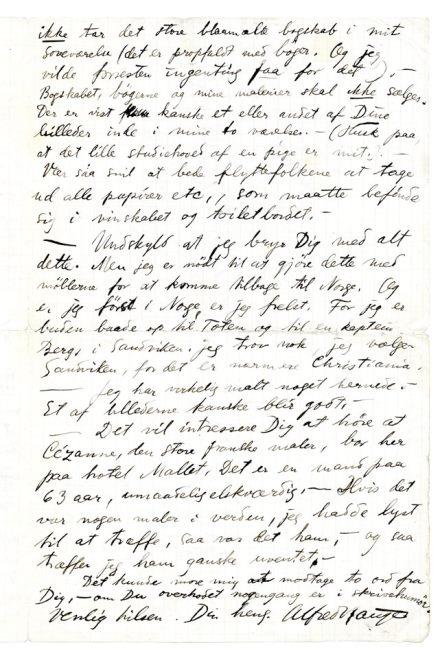 ikke tar det store blaamalte bogskab i mit
Soveværelse (det er propfuldt med bøger. Og jeg
vilde forresten ingenting faa for det). –
Bogskabet, bøgerne og mine malerier skal ikke sælges.
Der er vist kanske et eller andet af Dine
billeder inde i mine to værelser. – (Husk paa,
at det lille studiehoved af en pige er mit.). –
Vær saa snil at bede flyttefolkene at tage
ud alle papirer etc, som maatte befinde
sig i vinskabet og toiletbordet. –
– Undskyld at jeg bryr Dig med alt
dette. Men jeg er nødt til at gjøre dette med
møblerne for at komme tilbage til Norge. Og
er jeg først i Norge, er jeg frelst. For jeg er
buden baade op til Toten og til en kaptein
Berg, i Sandviken. jeg tror nok jeg vælger
Sandviken, for det er nærmere Christiania.
– jeg har virkelig malt noget hernede. –
Et af billederne kanske blir godt. –
– Det vil intressere Dig at høre at
Cézanne, den store franske maler, bor her
paa hotel Mallet. Det er en mand paa
63 aar, umaadelig elskværdig. – Hvis det
var nogen maler i verden, jeg hadde lyst
til at træffe, saa var det ham, – og saa
træffer jeg ham ganske uventet. –
Det kunde more mig at modtage to ord fra
Dig, – om Du overhodet nogengang er i skrivehumør.
Venlig hilsen. Din heng. Alfred Hauge